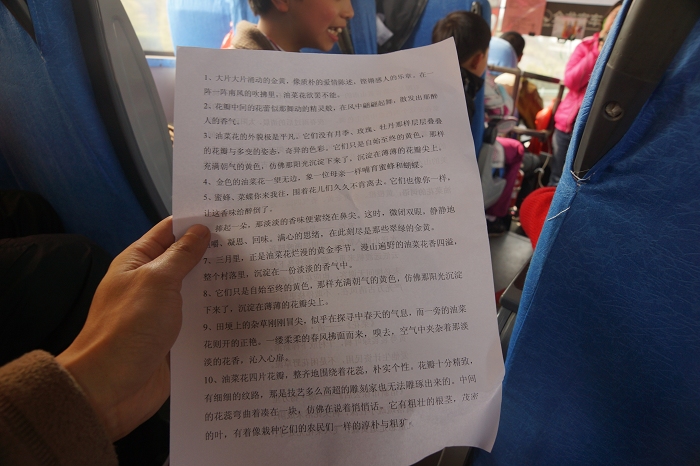 1、大片大片涌动的金黄，像质朴的爱情陈述，铿锵感人的乐章。在一
阵一阵南风的吹拂里，油菜花欣赏不能。
2、花瓣中间的花蕾似那舞动的精灵蛟，在风中翩翩起舞，散发出那醉
人的香气。
3、油菜花的外貌极是平凡。它们没有月季、玫瑰、牡丹那样层层叠叠
的花瓣与多变的姿态，奇异的色彩。它们只是自始至终的黄色，那样
充满朝气的黄色，仿佛那阳光沉淀下来了，沉淀在薄薄的花瓣尖上。
4、金色的油菜花一望无边，象一位母亲一样哺育蜜蜂和蝴蝶。
5、蜜蜂、菜蝶你来我往，围着花儿们久久不肯离去。它们也像你一样，
让这香味给醉倒了。
捧起一朵，那淡淡的香味便萦绕在鼻尖。这时，微闭双眼，静静地
嗅，凝思，回味。满心的思绪，在此刻尽是那些翠绿的金黄。
7、三月里，正是油菜花烂漫的黄金季节。漫山遍野的油菜花香四溢，
整个村落里，沉淀在一份淡淡的香气中。
8、它们只是自始至终的黄色，那样充满朝气的黄色，仿佛那阳光沉淀
下来了，沉淀在薄薄的花瓣尖上。
9、田埂上的杂草刚刚冒尖，似乎在探寻中春天的气息，而一旁的油菜
花则开的正艳。一缕柔柔的春风拂面而来，嗅去，空气中夹杂着那淡
淡的花香，沁人心扉。
10、油菜花四片花瓣，整齐地围绕着花蕊，朴实个性。花瓣十分精致，
有细细的纹路，那是技艺多么高超的雕刻家也无法雕琢出来的。中间
的花蕊弯曲着凑在一块，仿佛在说着悄悄话。它有粗壮的根茎，茂密
的叶，有着像栽种它们的农民们一样的淳朴与粗犷。